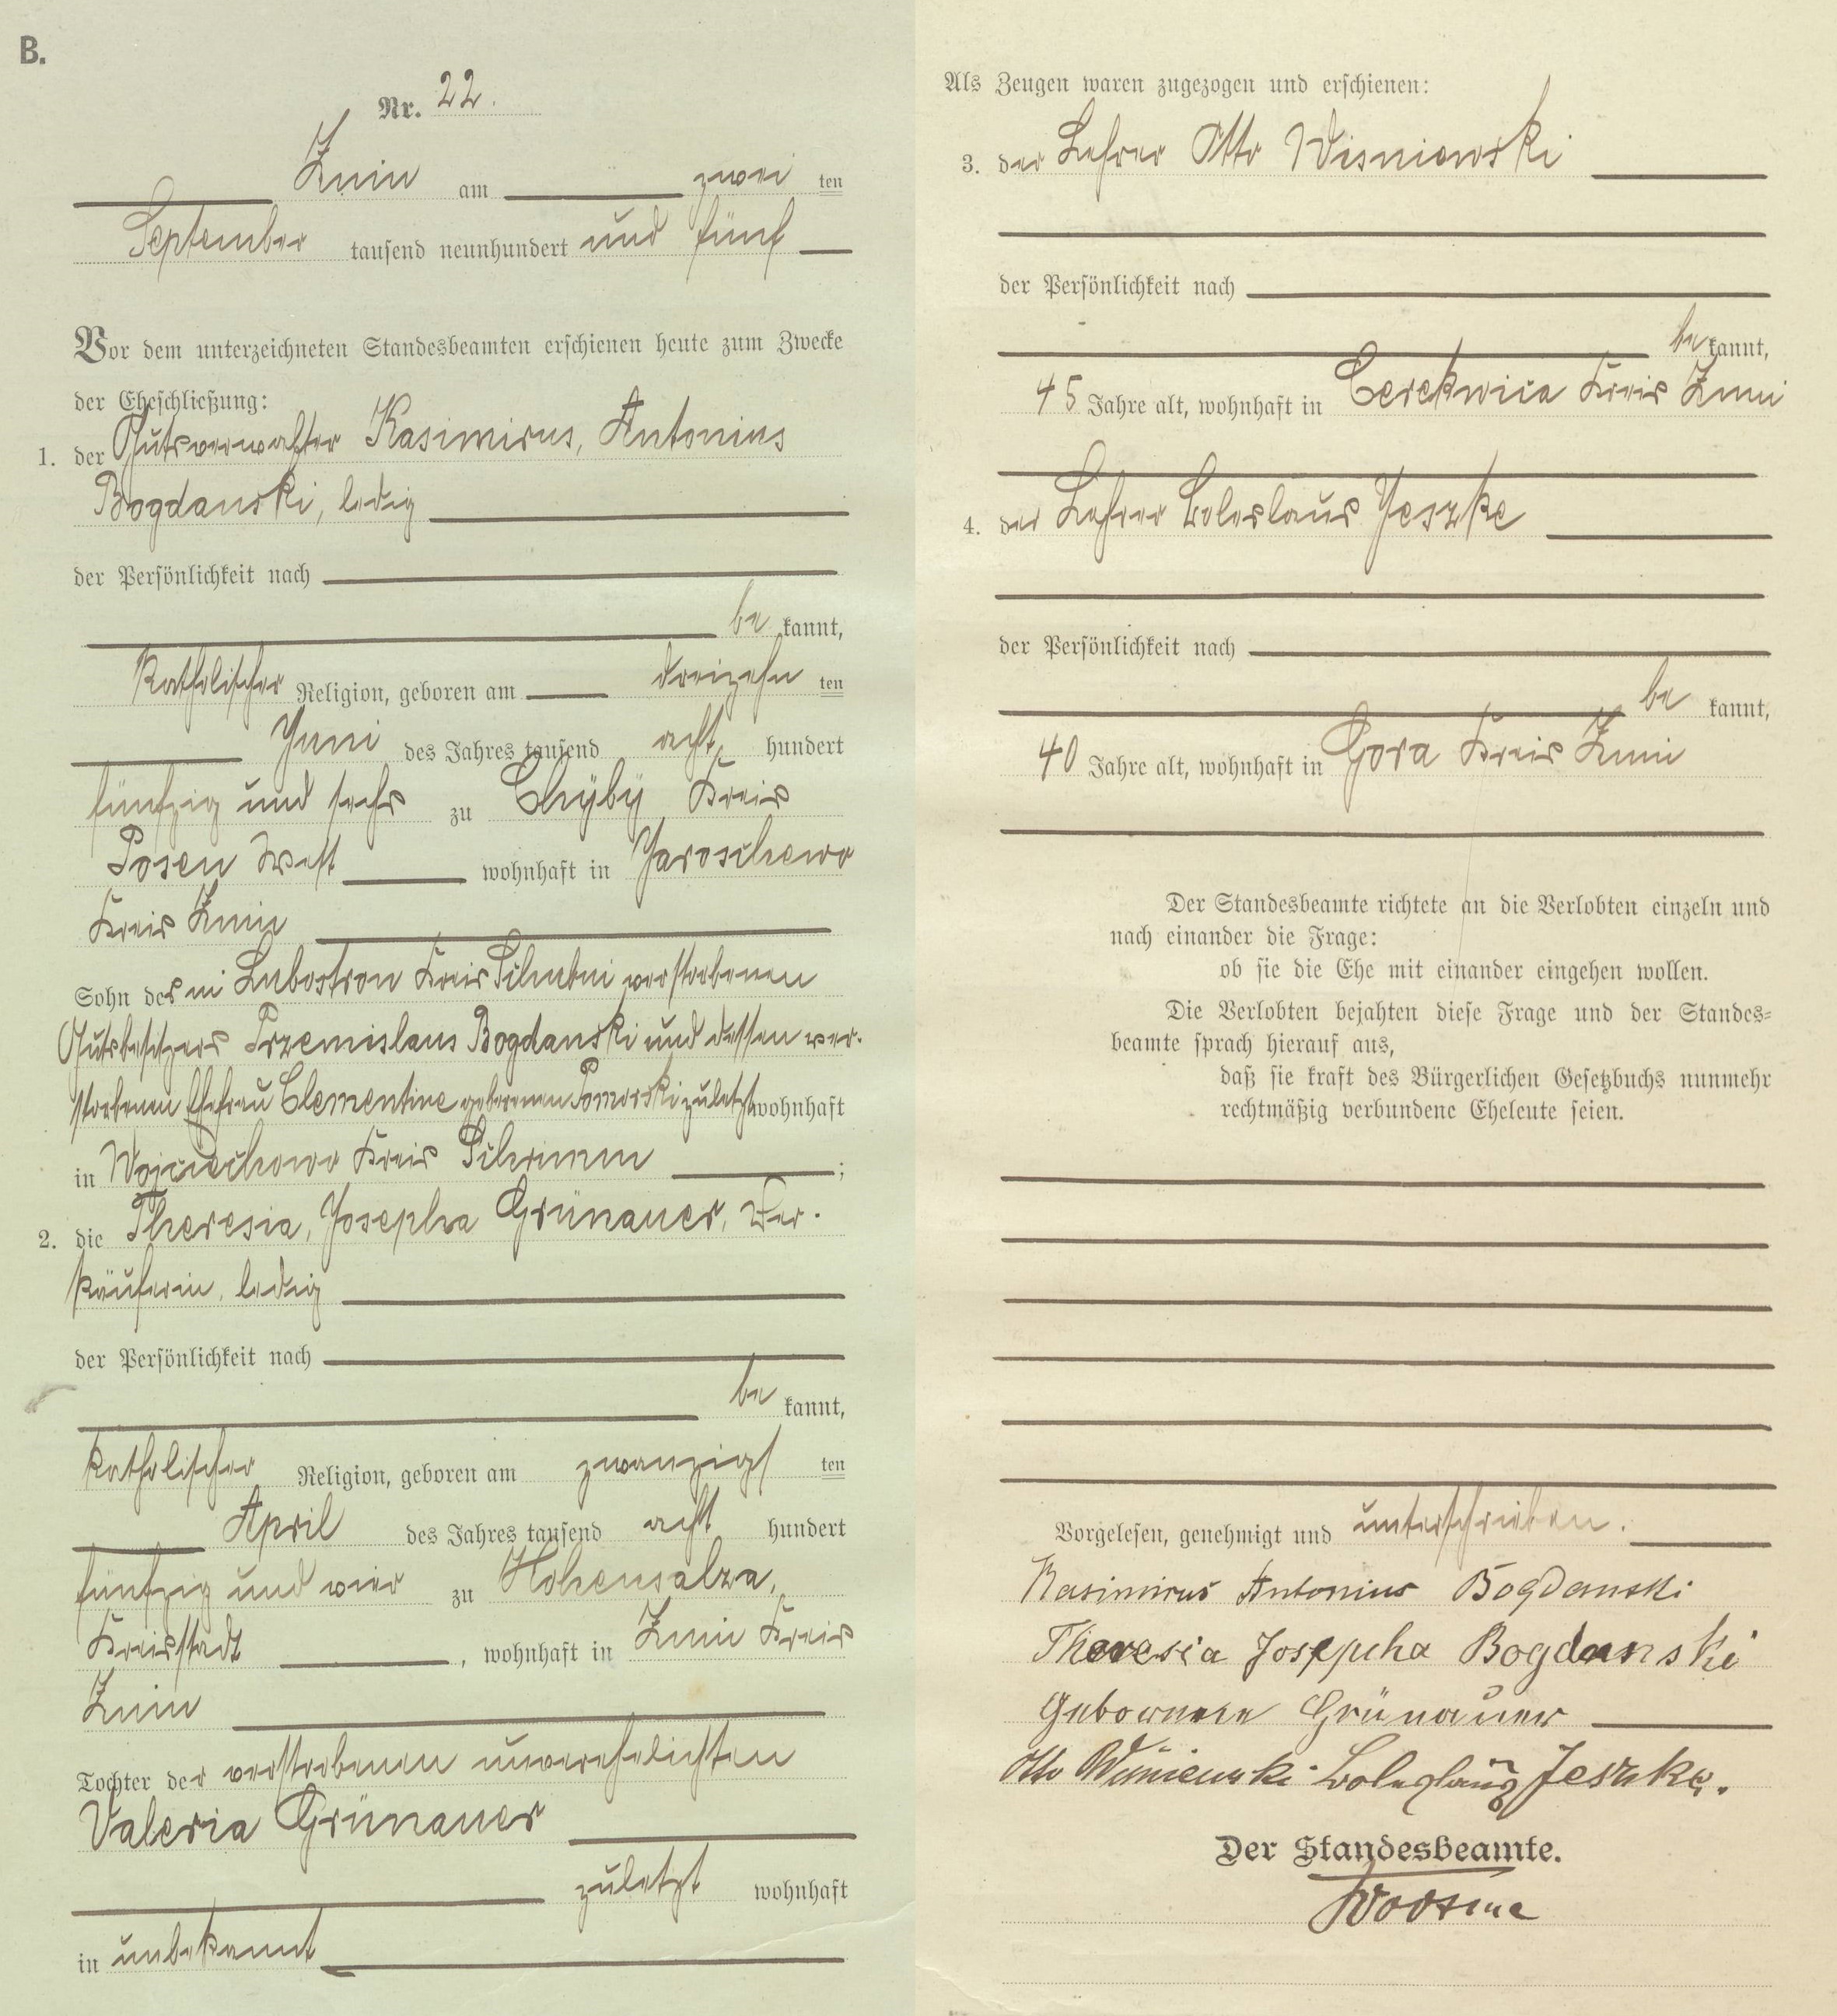 B.
Nr. 22.
Znin am zwei ten
September tausend neunhundert und fünf
Vor dem unterzeichneten Standesbeamten erschienen heute zum Zwecke
der Eheschließung:
1. der Gutsverwalter Kasimirus, Antonius
Bogdanski, ledig
der Persönlichkeit nach
be kannt,
katholischer Religion, geboren am dreizehn ten
Juni des Jahres tausend acht hundert
fünfzig und sechs zu Chyby Kreis
Posen West wohnhaft in Jaroschewo
Kreis Znin
Sohn des in Lubostron Kreis Schubin verstorbenen
Gutsbesitzers Przemislaus Bogdanski und dessen ver-
storbenen Ehefrau Clementine geborenen Pomorski zuletzt wohnhaft
in Wojciechowo Kreis Schrimm ;
2. die Theresia, Josepha Grünauer, Ver-
käuferin, ledig
der Persönlichkeit nach
be kannt,
katholischer Religion, geboren am zwanzigs ten
April des Jahres tausend acht hundert
fünfzig und vier zu Hohensalza,
Kreisstadt , wohnhaft in Znin Kreis
Znin
Tochter der verstorbenen unverehelichten
Valeria Grünauer
zuletzt wohnhaft
in unbekannt
Als Zeugen waren zugezogen und erschienen:
3. der Lehrer Otto Wisniewski
der Persönlichkeit nach
be kannt,
45 Jahre alt, wohnhaft in Cerekwica Kreis Znin
4. der Lehrer Boleslaus Jeszke
der Persönlichkeit nach
be kannt,
40 Jahre alt, wohnhaft in Gora Kreis Znin
Der Standesbeamte richtete an die Verlobten einzeln und
nach einander die Frage:
ob sie die Ehe mit einander eingehen wollen.
Die Verlobten bejahten diese Frage und der Standes-
beamte sprach hierauf aus,
daß sie kraft des Bürgerlichen Gesetzbuchs nunmehr
rechtmäßig verbundene Eheleute seien.
Vorgelesen, genehmigt und unterschrieben.
Kasimirus Antonius Bogdanski
Theresia Josepha Bogdanski
geborene Grünauer
Otto Wisniewski Boleslaus Jeszke.
Der Standesbeamte.